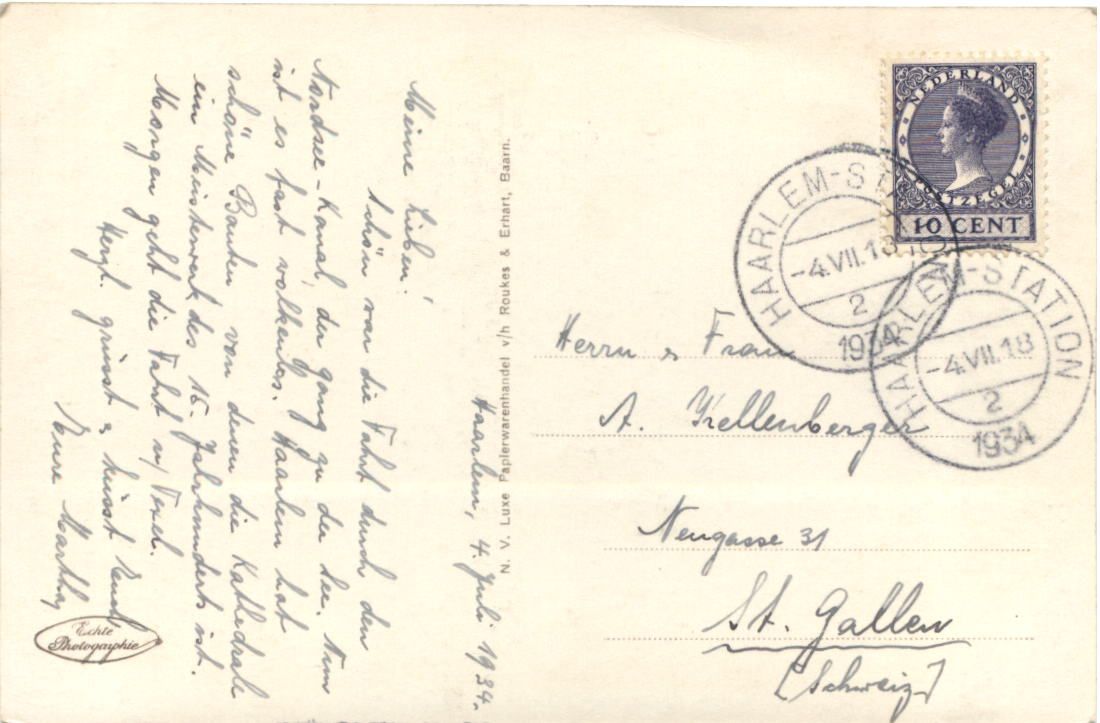 Haarlem, 4. Juli 1934.
Meine Lieben!
Schön war die Fahrt durch den
Nordsee-Kanal, zu der See. Nun
ist es fast wolkenlos. Haarlem hat
schöne Bauten von denen die Kathedrale
ein Meisterwerk des 15. Jahrhunderts ist.
Morgen geht die Fahrt n/ Texel.
Herzl. grüsst & küsst Euch
Eure Marthy
Echte
Photographie
N. V. Luxe Papierwarenhandel v/h Roukes & Erhart, Baarn.
NEDERLAND
POSTZEGEL
10 CENT
HAARLEM-STATION
-4.VII.18
2
1934
HAARLEM-STATION
-4.VII.18
2
1934
Herrn & Frau
A. Kellenberger
Neugasse 31
St. Gallen
(Schweiz)